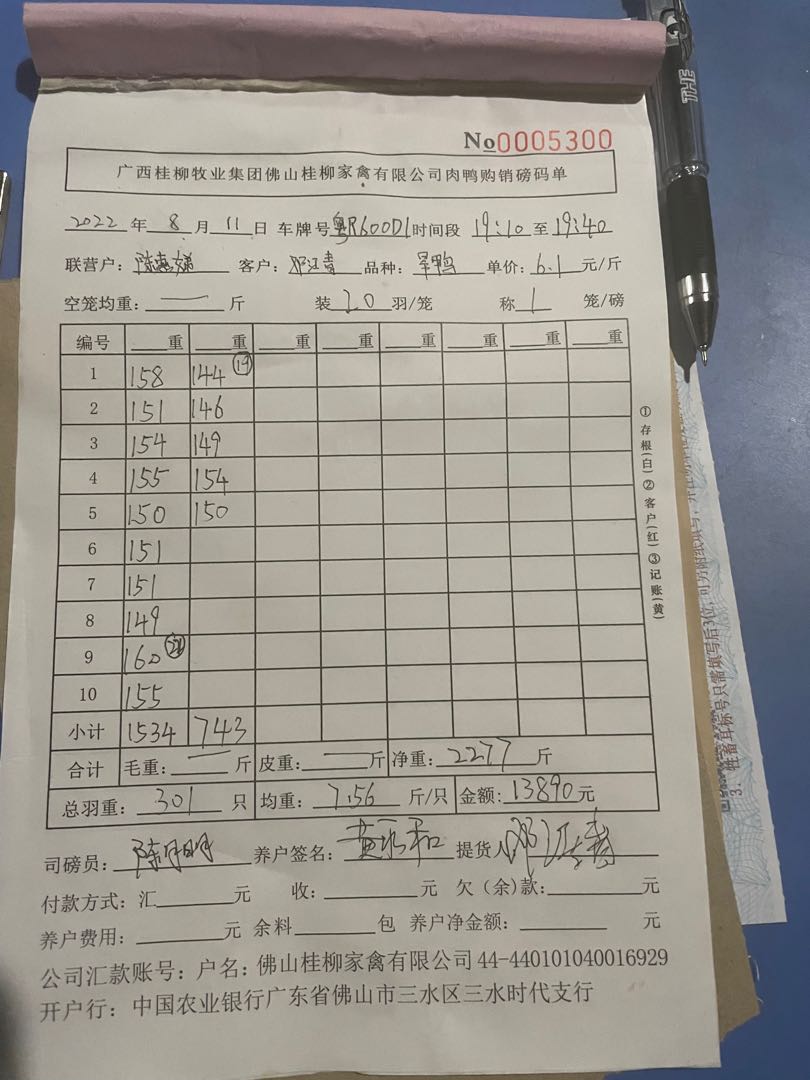 THE
No0005300
广西桂柳牧业集团佛山桂柳家禽有限公司肉鸭购销磅码单
2022 年 8 月 11 日 车牌号 粤R600D1 时间段 19:10 至 19:40
联营户: 陈惠娣 客户: 邓江青 品种: 旱鸭 单价: 6.1 元/斤
空笼均重: — 斤 装 20 羽/笼 称 1 笼/磅
编号 重 重 重 重 重 重 重 重
1 158 144 ⑲
2 151 146
3 154 149
4 155 154
5 150 150
6 151
7 151
8 149
9 160
10 155
小计 1534 743
合计 毛重: — 斤 皮重: — 斤 净重: 2277 斤
总羽重: 301 只 均重: 7.56 斤/只 金额: 13890 元
①存根(白)②客户(红)③记账(黄)
司磅员: 陈明 养户签名: 黄永和 提货人 邓江青
付款方式: 汇 元 收: 元 欠(余)款: 元
养户费用: 元 余料 包 养户净金额: 元
公司汇款账号: 户名: 佛山桂柳家禽有限公司 44-440101040016929
开户行: 中国农业银行广东省佛山市三水区三水时代支行
3. 牲畜耳标号只需填写后3位,